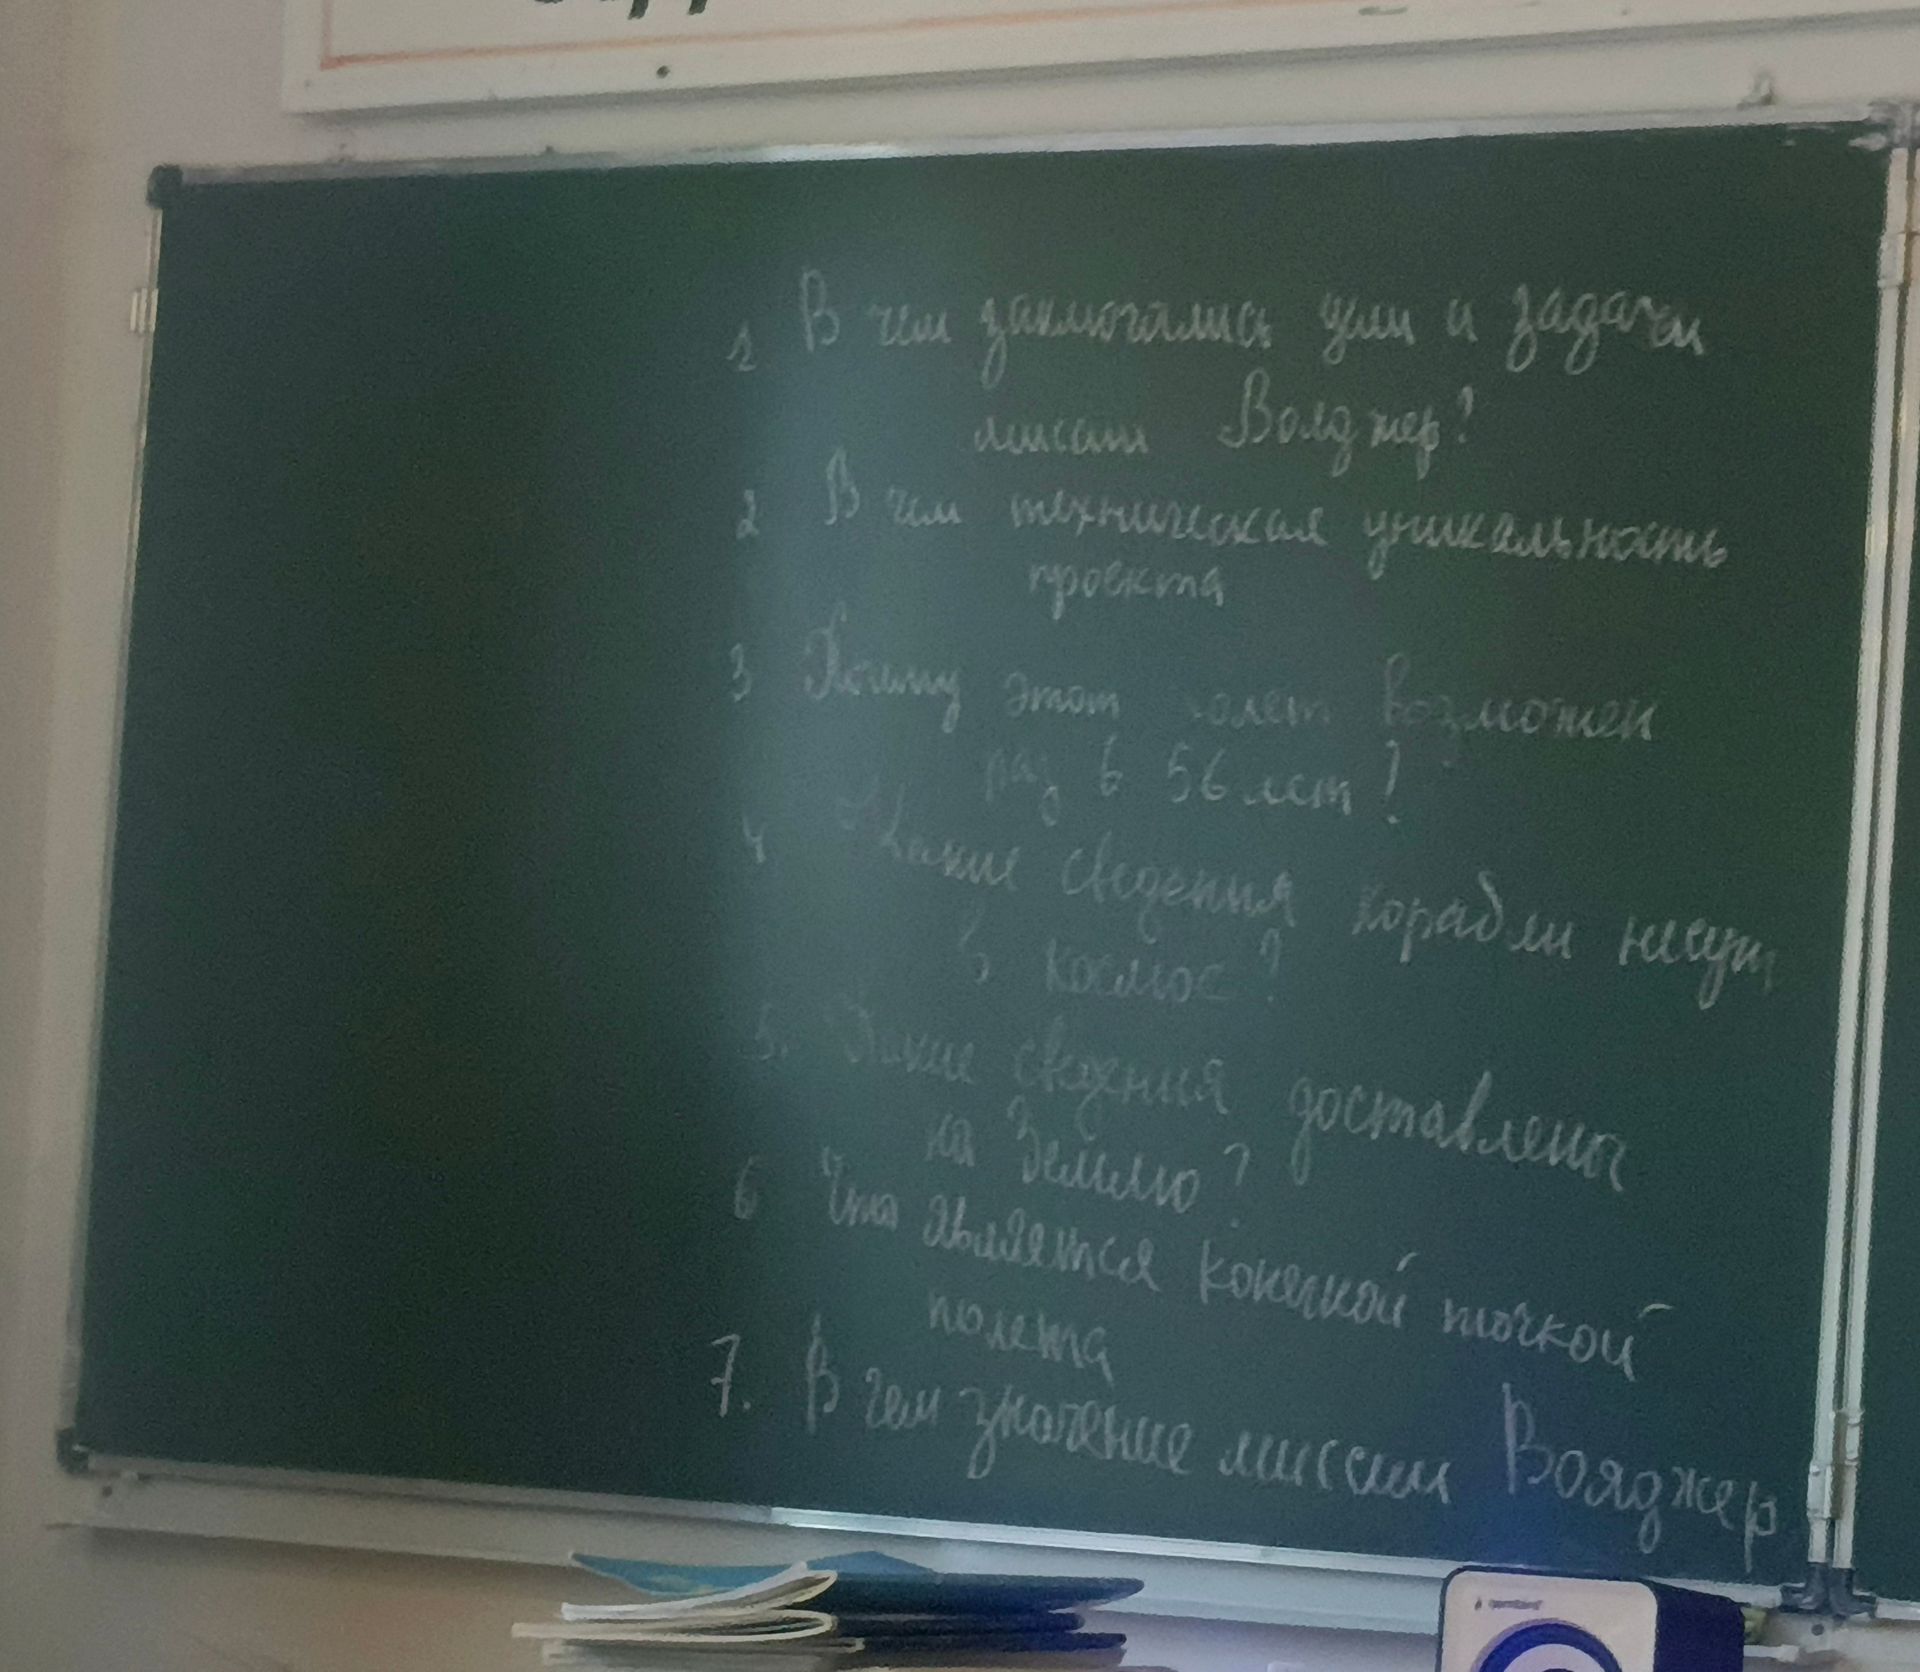 1 В чем заключались цели и задачи
миссии Вояджер?
2 В чем техническая уникальность
проекта
3 Почему этот полет возможен
раз в 56 лет?
4 Какие сведения корабли несут
в космос?
5. Какие сведения доставлены
на Землю?
6 Что является конечной точкой
полета
7. В чем значение миссии Вояджер